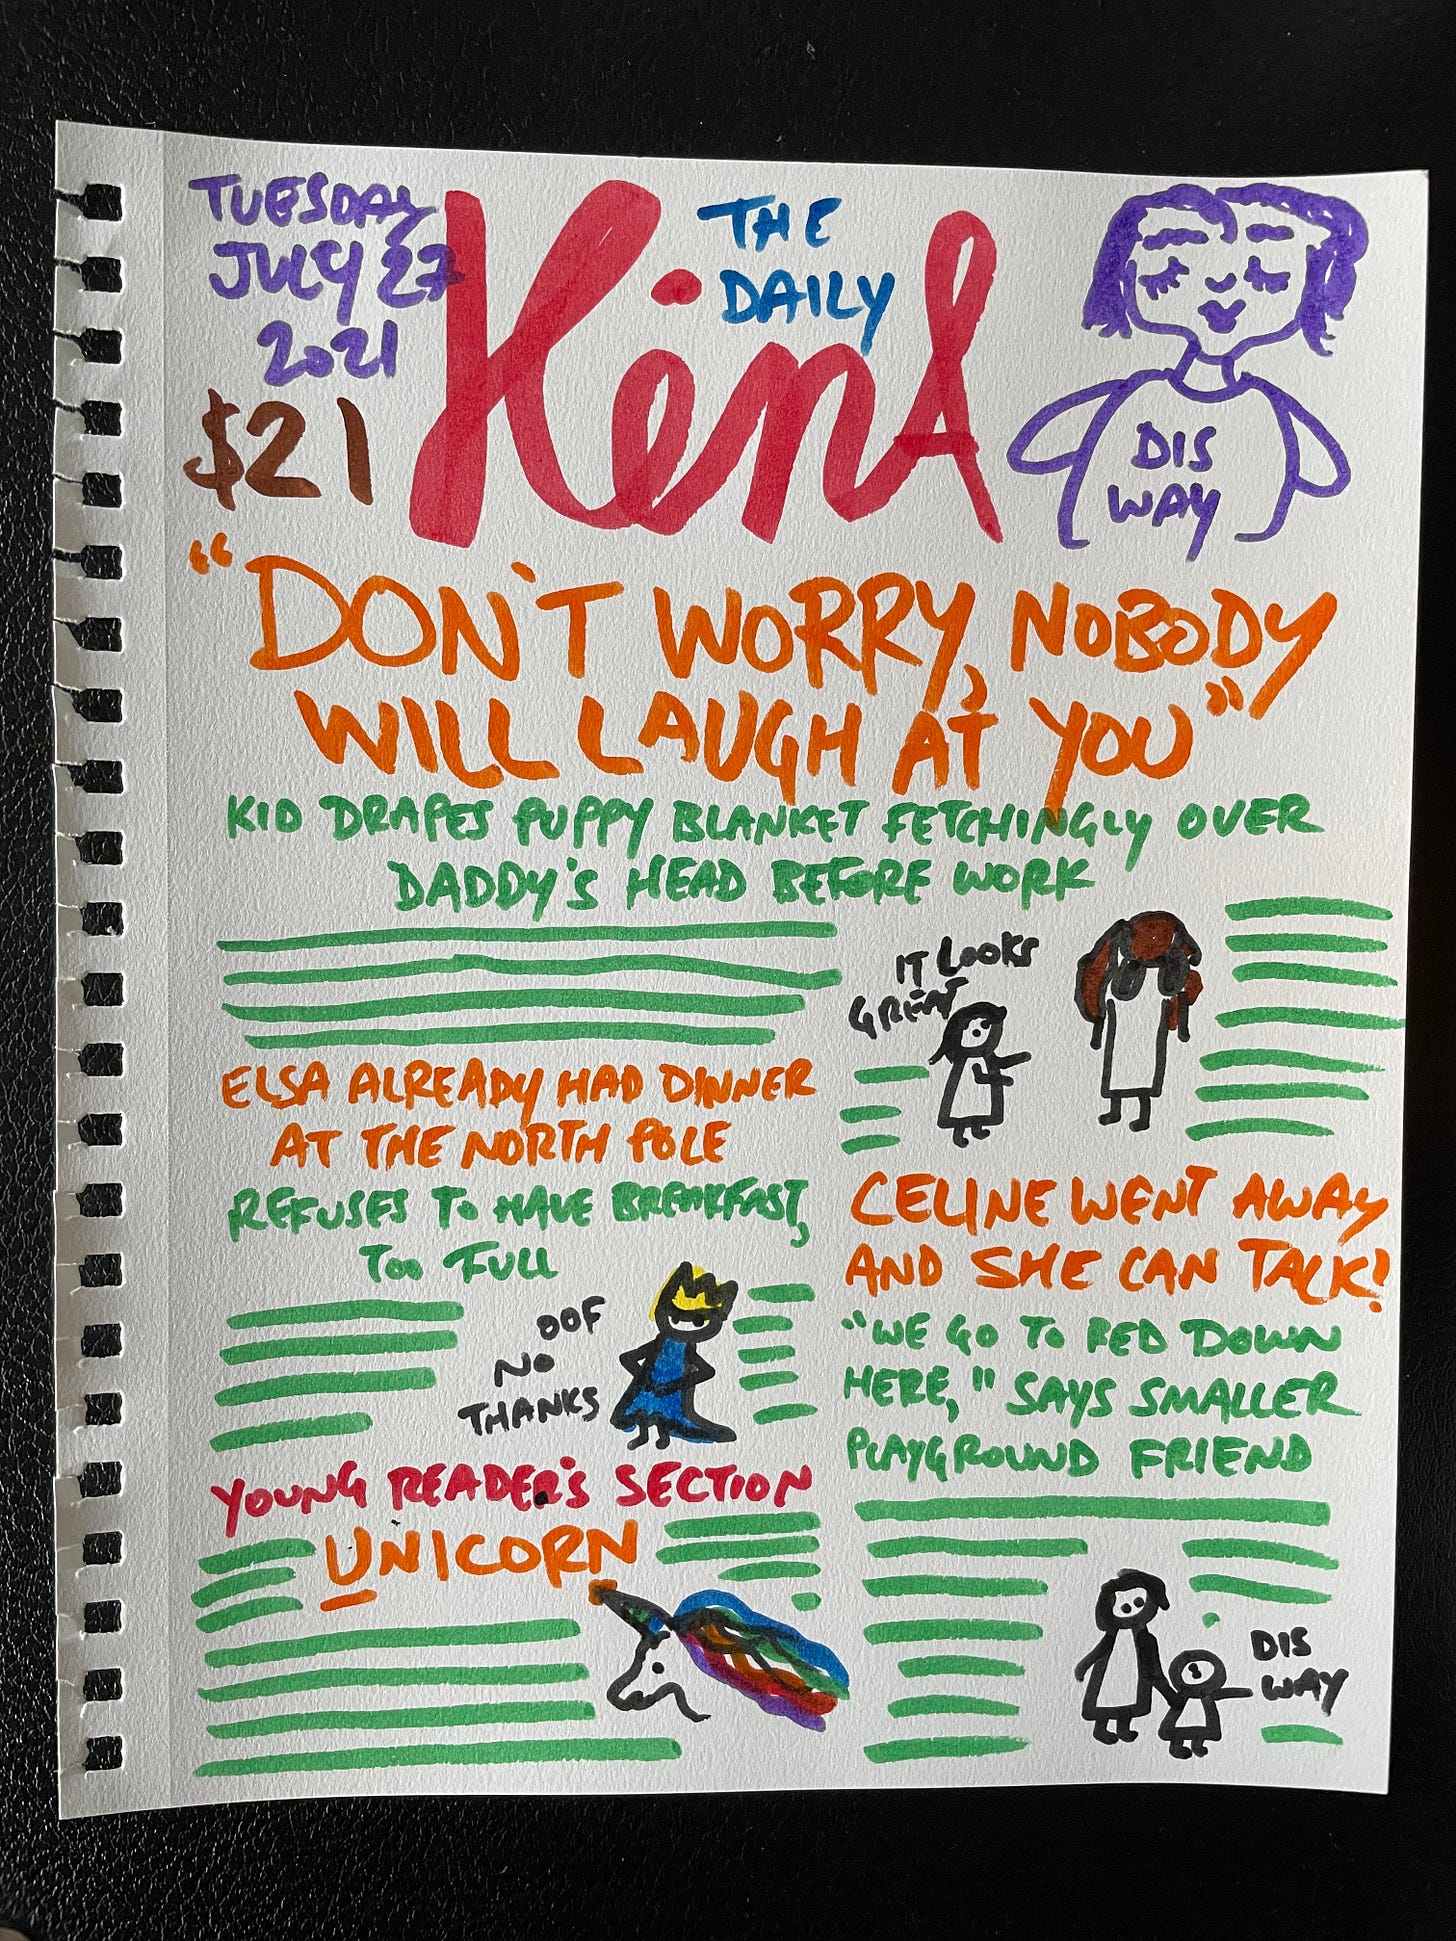 TUESDAY
JULY 27
2021
$21
THE
DAILY
Hind
DIS
WAY
"DON'T WORRY, NOBODY
WILL LAUGH AT YOU"
KID DRAPES PUPPY BLANKET FETCHINGLY OVER
DADDY'S HEAD BEFORE WORK
IT LOOKS
GREAT
ELSA ALREADY HAD DINNER
AT THE NORTH POLE
REFUSES TO HAVE BREAKFAST,
TOO FULL
OOF
NO
THANKS
YOUNG READER'S SECTION
UNICORN
CELINE WENT AWAY
AND SHE CAN TALK!
"WE GO TO BED DOWN
HERE," SAYS SMALLER
PLAYGROUND FRIEND
DIS
WAY